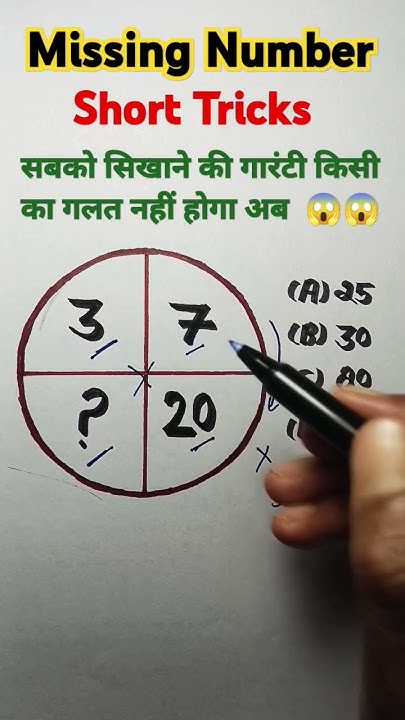 Missing Number
Short Tricks
सबको सिखाने की गारंटी किसी
का गलत नहीं होगा अब 😱😱
3 7 (A) 25
(B) 30
? 20